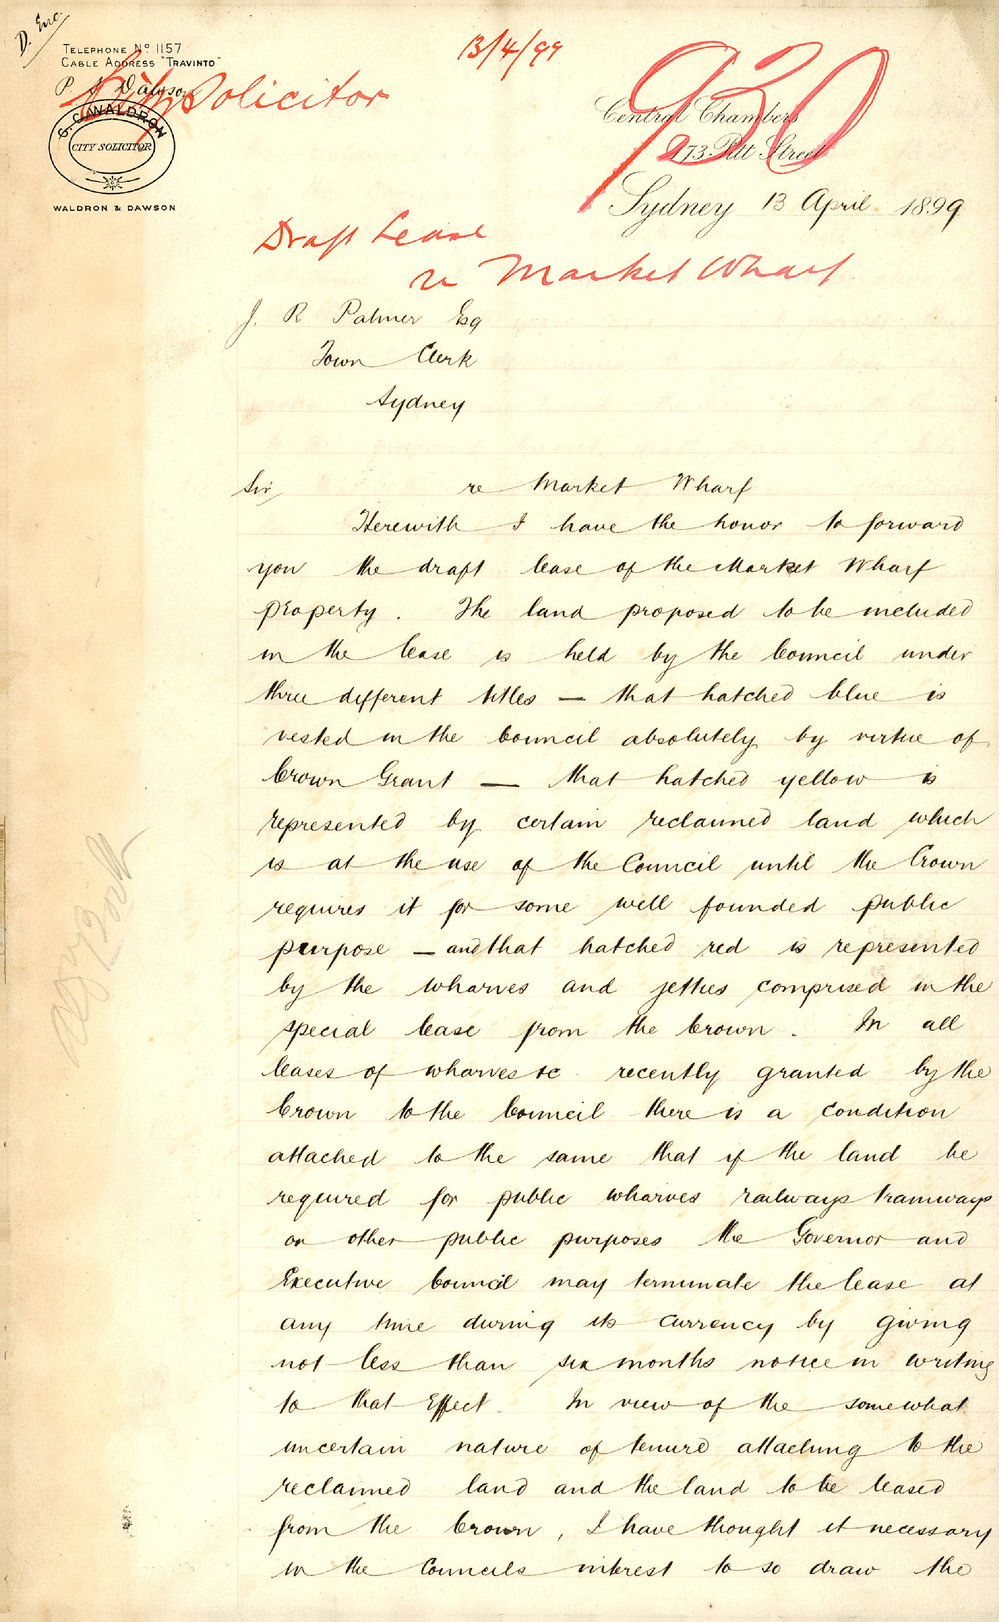 D. Enc.
TELEPHONE Nº 1157
CABLE ADDRESS "TRAVINTO"
P. Dawson
City Solicitor
G. C. WALDRON
CITY SOLICITOR
WALDRON & DAWSON
13/4/99
930
Central Chambers
173 Pitt Street
Sydney 13 April 1899
Draft Lease
re Market Wharf
J. R Palmer Esq
Town Clerk
Sydney
Sir, re Market Wharf
Herewith I have the honor to forward
you the draft lease of the Market Wharf
property. The land proposed to be included
in the lease is held by the Council under
three different titles — that hatched blue is
vested in the Council absolutely by virtue of
Crown Grant — that hatched yellow is
represented by certain reclaimed land which
is at the use of the Council until the Crown
requires it for some well founded public
purpose — and that hatched red is represented
by the wharves and jetties comprised in the
special lease from the Crown. In all
leases of wharves &c recently granted by the
Crown to the Council there is a condition
attached to the same that if the land be
required for public wharves railways tramways
or other public purposes the Governor and
Executive Council may terminate the lease at
any time during its currency by giving
not less than six months notice in writing
to that effect. In view of the somewhat
uncertain nature of tenure attaching to the
reclaimed land and the land to be leased
from the Crown, I have thought it necessary
in the Councils interest to so draw the